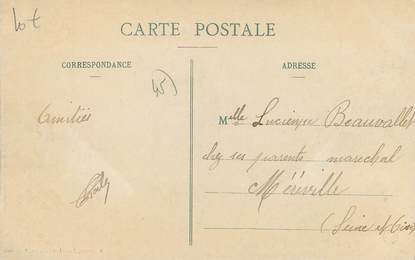 Lot
CARTE POSTALE
CORRESPONDANCE
ADRESSE
45)
Amitiés
Melle Lucienne Beauvallet
chez ses parents marechal
Méréville
(Seine et Oise)